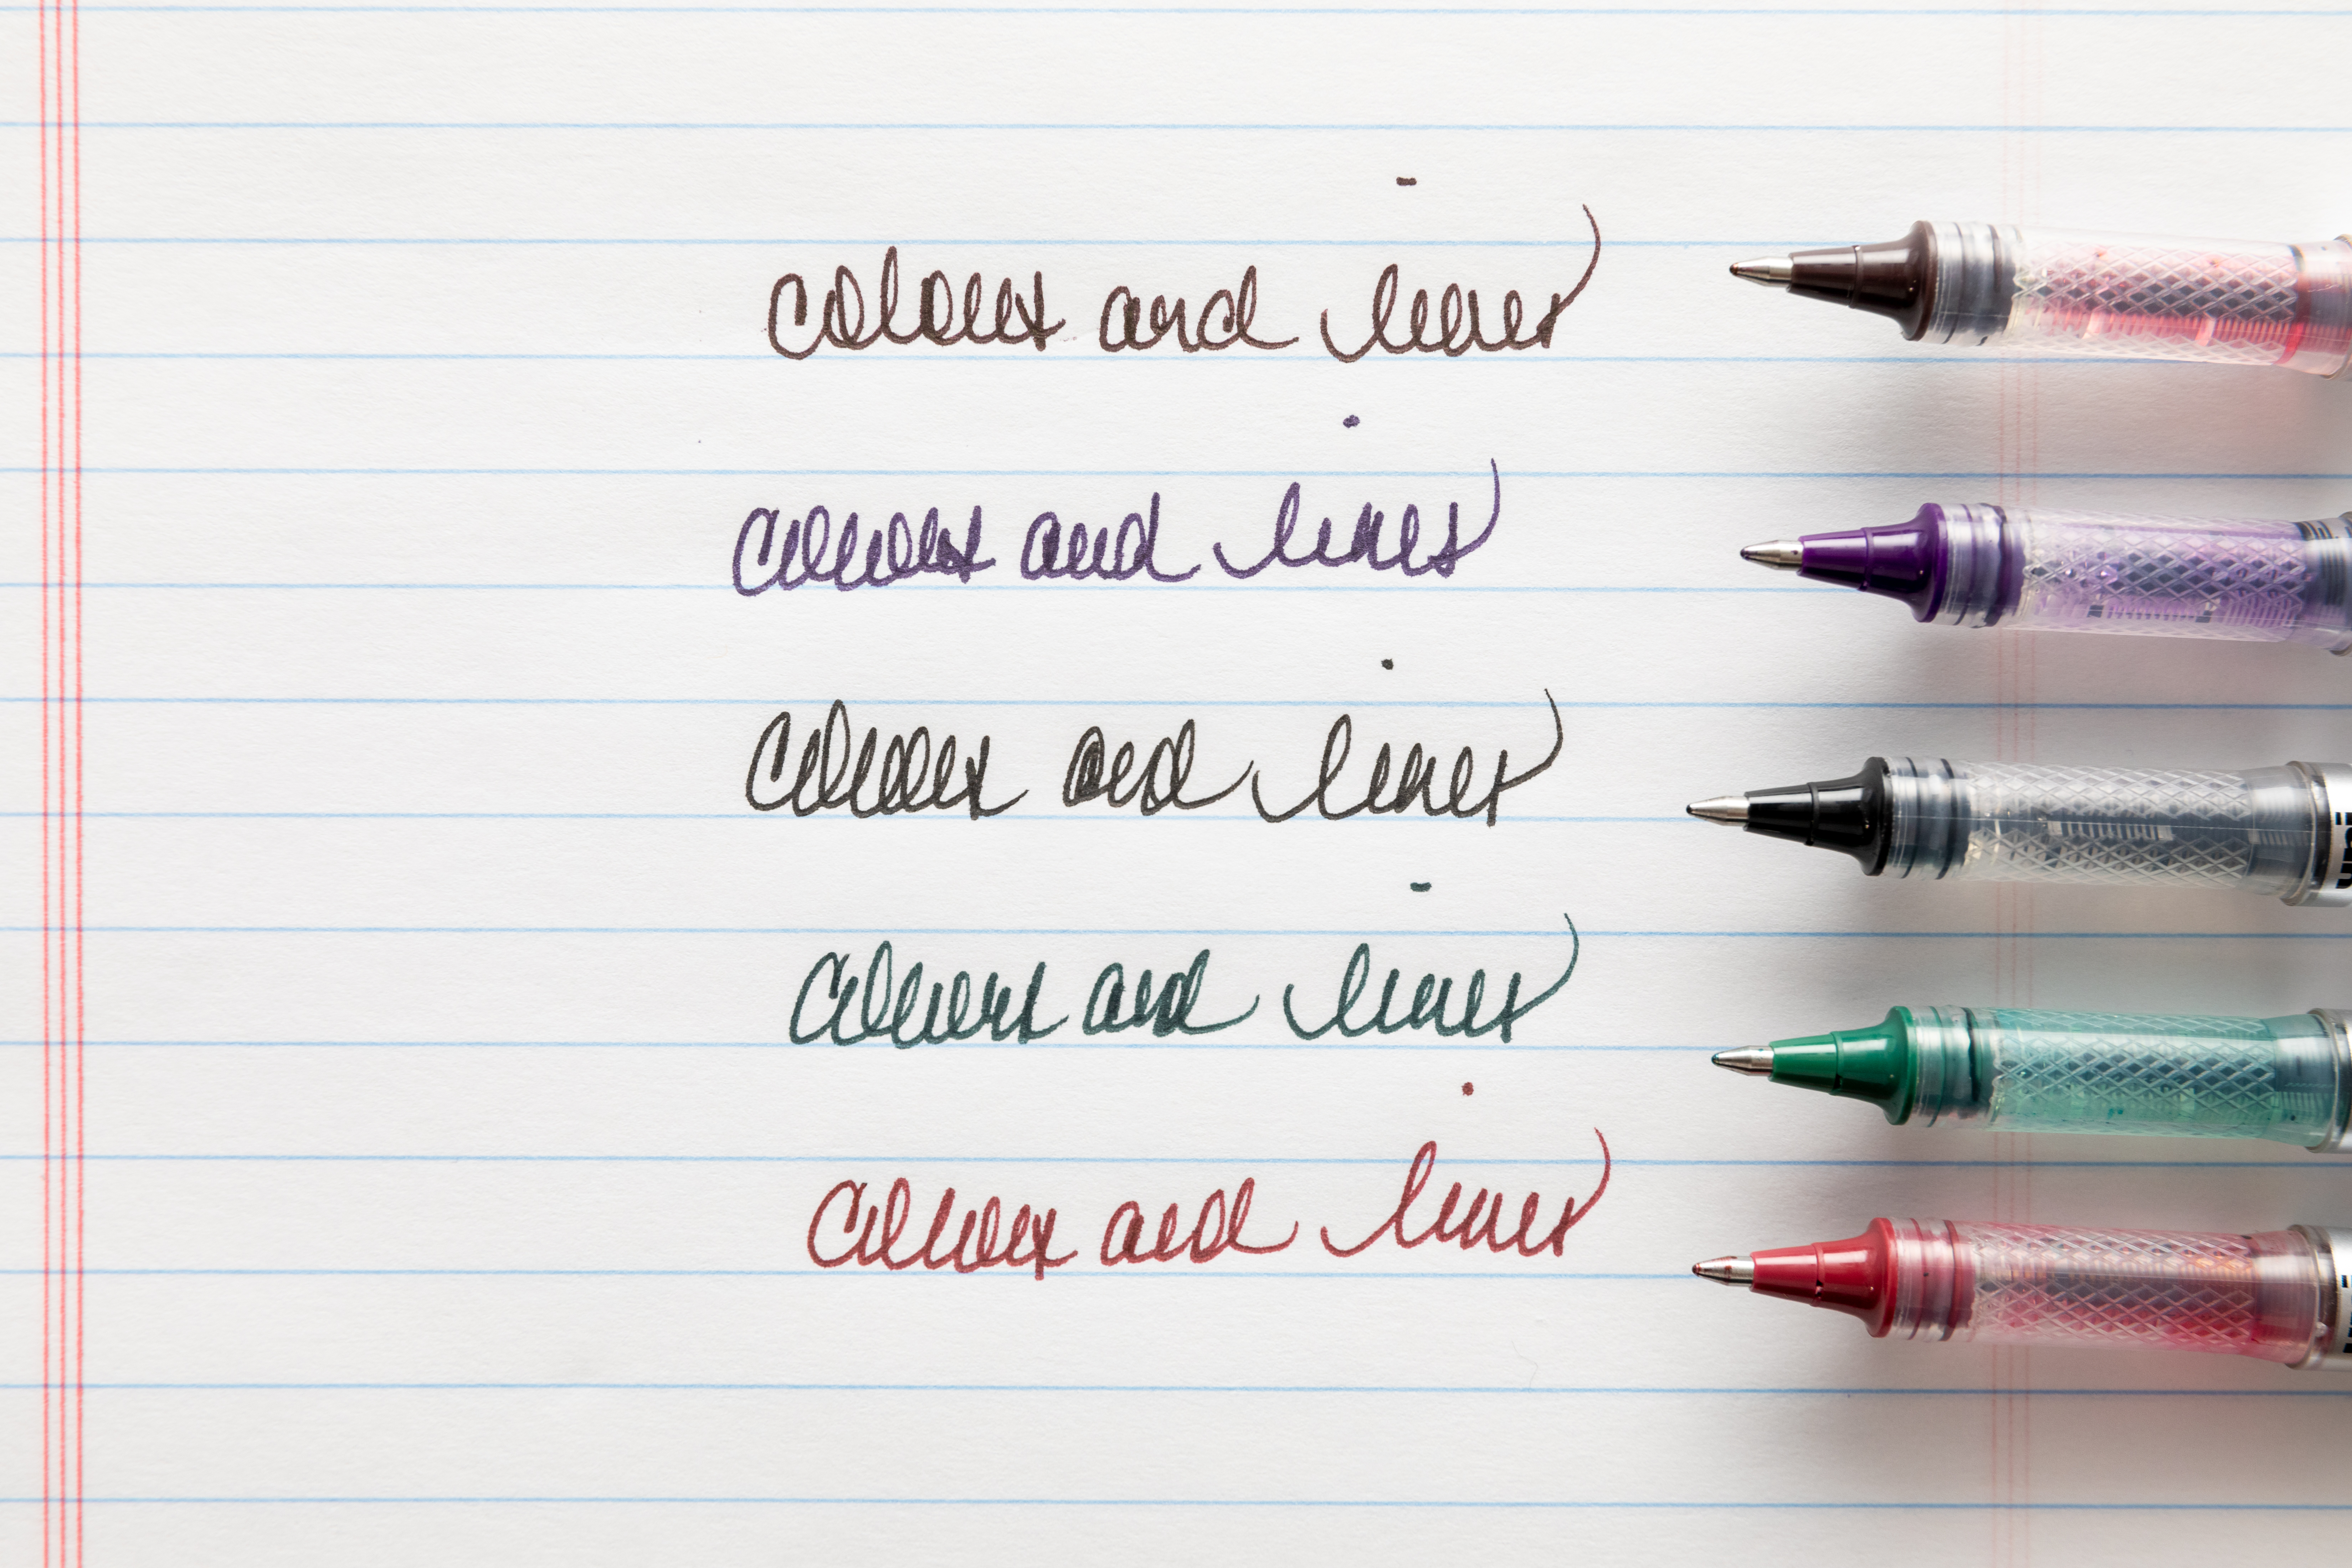 colours and lines
colours and lines
colours and lines
colours and lines
colours and lines